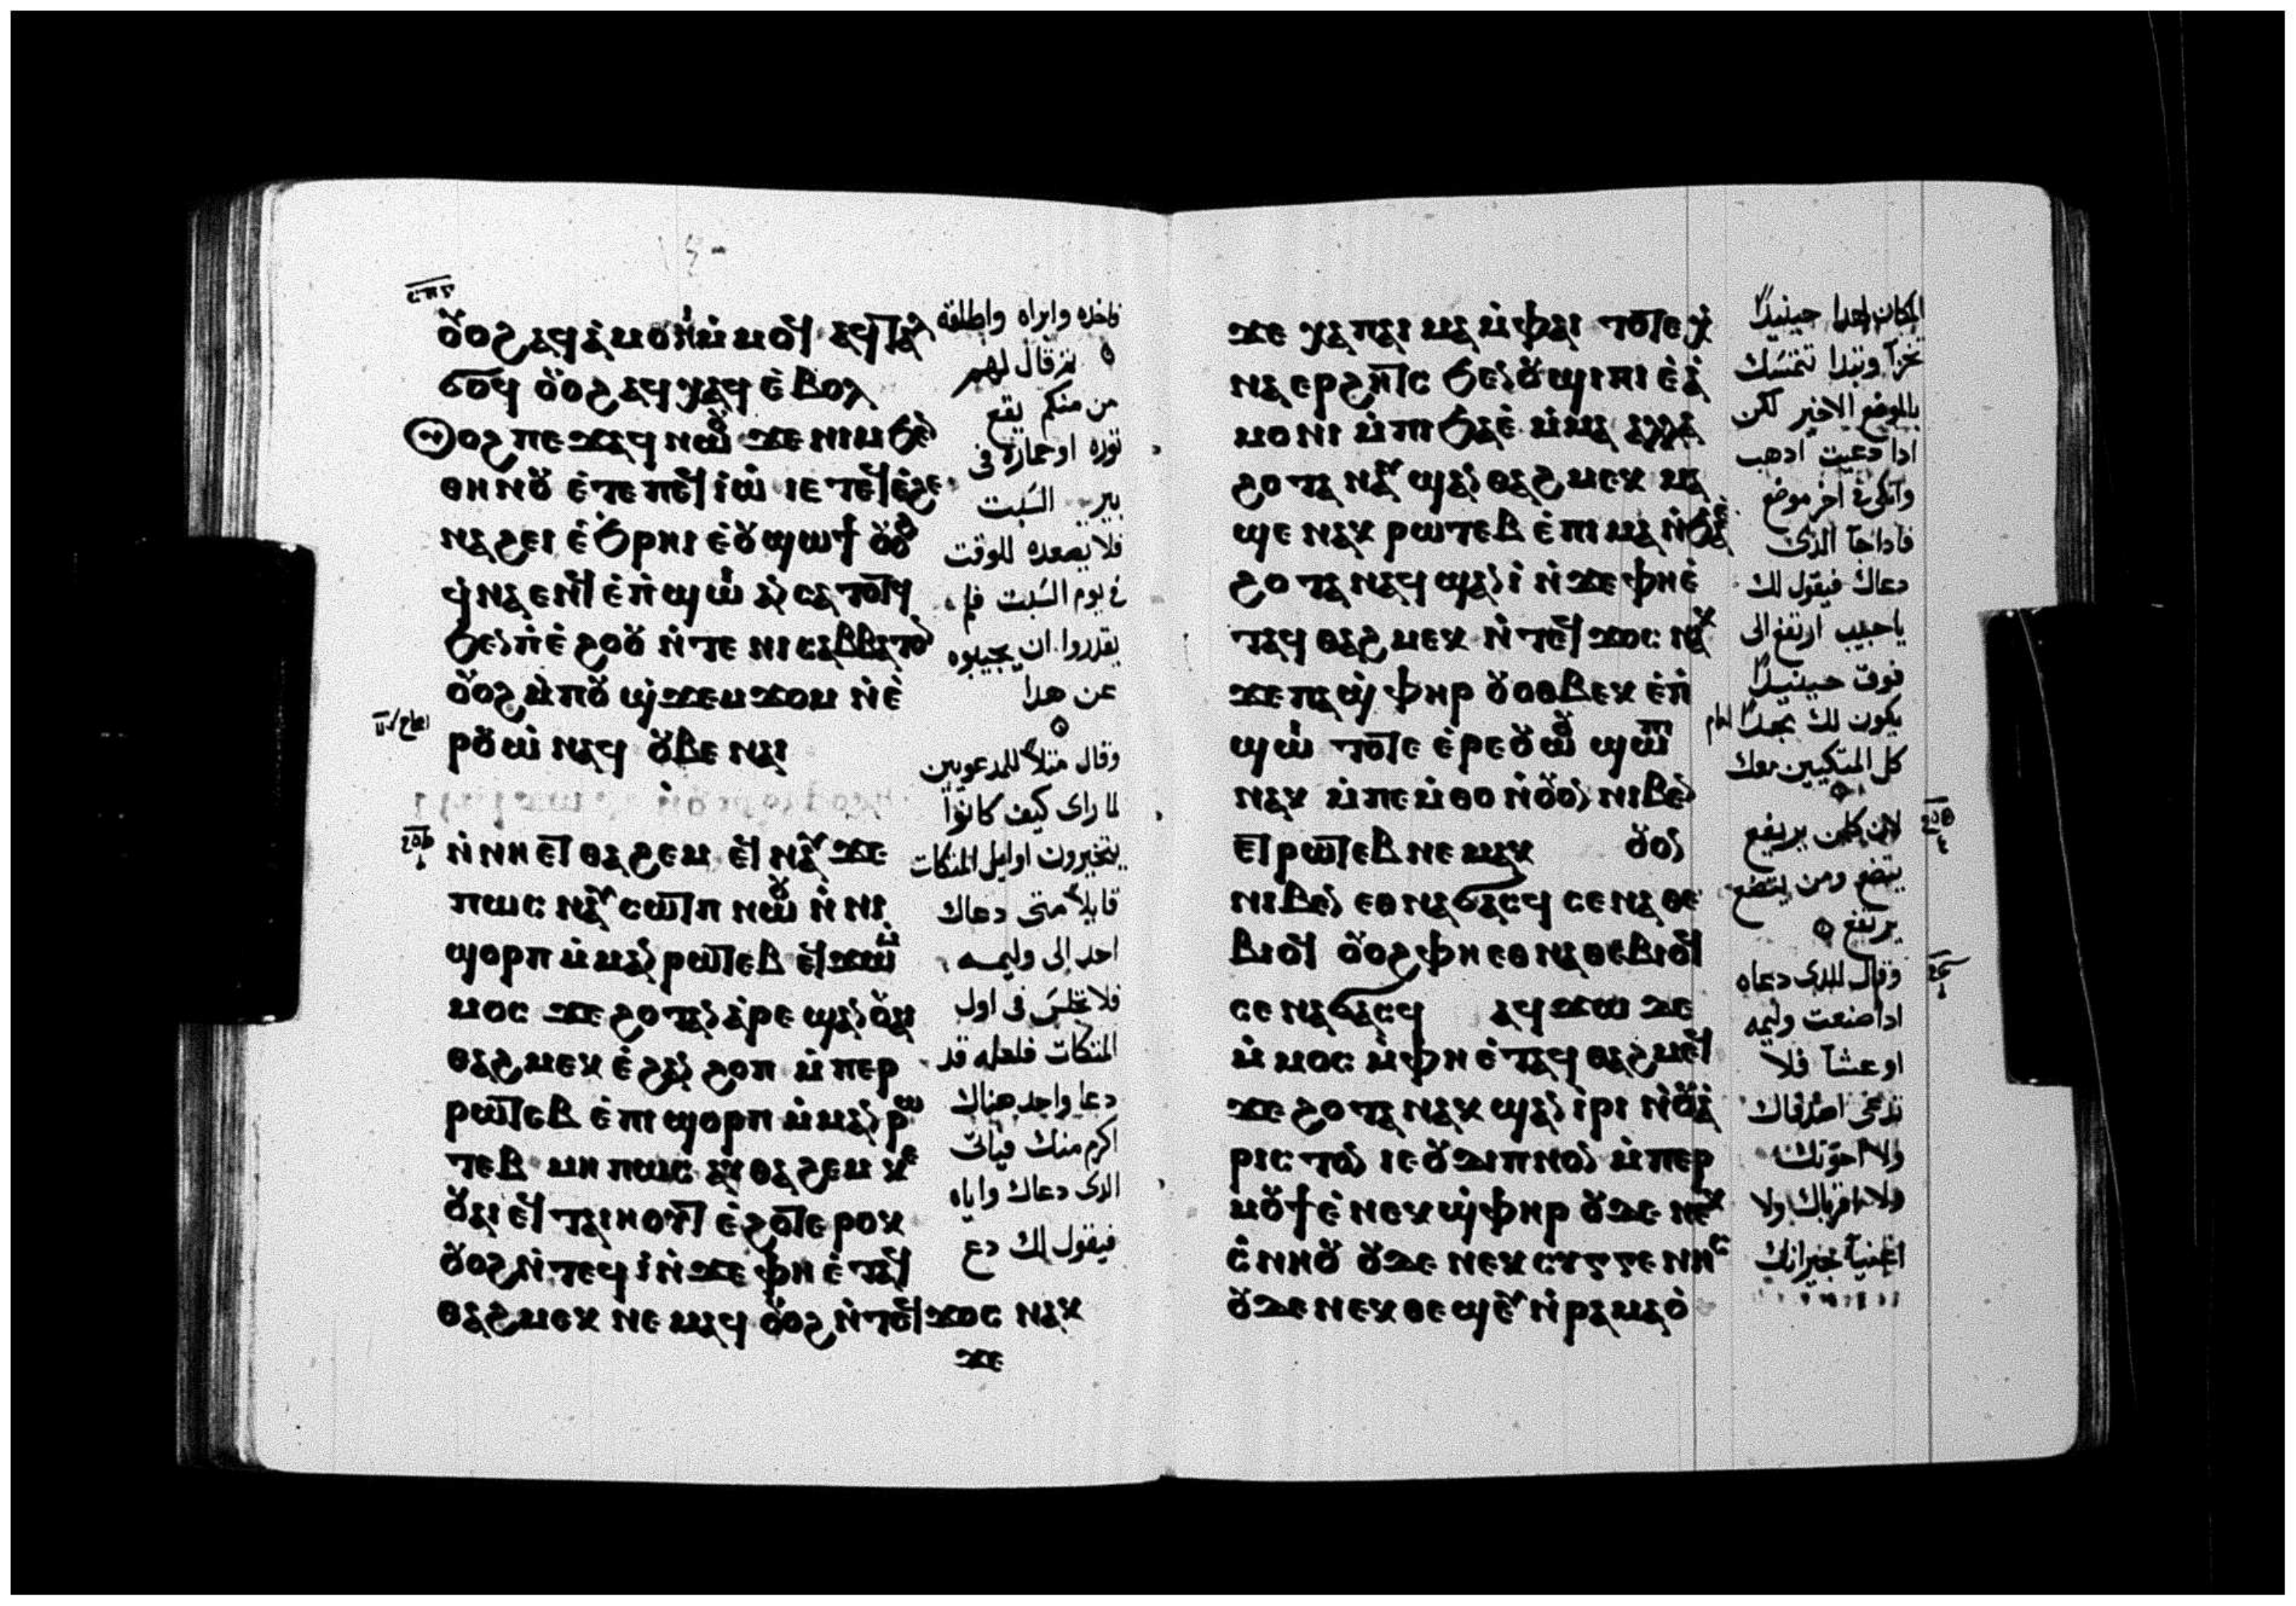 ⲥⲡⲋ
ⲟⲩⲟϩ ⲁϥⲁⲙⲟⲛⲓ ⲙⲙⲟϥ ⲁϥⲧⲁⲗ
ϭⲟϥ ⲟⲩⲟϩ ⲁϥⲭⲁϥ ⲉⲃⲟⲗ
ⲟⲩⲟϩ ⲡⲉϫⲁϥ ⲛⲱⲟⲩ ϫⲉ ⲛⲓⲙ ϧⲉⲛ
ⲑⲏⲛⲟⲩ ⲉⲧⲉ ⲡⲉϥⲓⲱ ⲓⲉ ⲧⲉϥⲉϩⲉ
ⲛⲁϩⲉⲓ ⲉϧⲣⲏⲓ ⲉⲟⲩϣⲱϯ ⲟⲩⲟϩ
ϥⲛⲁⲉⲛϥ ⲉⲡϣⲱⲓ ⲁⲛ ⲥⲁⲧⲟⲧϥ
ϧⲉⲛ ⲡⲉϩⲟⲟⲩ ⲛⲧⲉ ⲛⲓⲥⲁⲃⲃⲁⲧⲟⲛ
ⲟⲩⲟϩ ⲙⲡⲟⲩϣϫⲉⲙϫⲟⲙ ⲛⲉ
ⲣⲟⲩⲱ ⲛⲁϥ ⲟⲩⲃⲉ ⲛⲁⲓ
ⲛⲛⲏ ⲉⲧⲑⲁϩⲉⲙ ⲉϥⲛⲁⲩ ϫⲉ
ⲡⲱⲥ ⲛⲁⲩⲥⲱⲧⲡ ⲛⲱⲟⲩ ⲛⲛⲓ
ϣⲟⲣⲡ ⲙⲙⲁⲛⲣⲱⲧⲉⲃ ⲉϥϫⲱⲙ
ⲙⲟⲥ ϫⲉ ϩⲟⲧⲁⲛ ⲁⲣⲉϣⲁⲛⲟⲩⲁⲓ
ⲑⲁϩⲙⲉⲕ ⲉϩⲁⲛϩⲟⲡ ⲙⲡⲉⲣ
ⲣⲱⲧⲉⲃ ⲉⲡⲓϣⲟⲣⲡ ⲙⲙⲁⲛⲣⲱ
ⲧⲉⲃ ⲙⲏ ⲡⲱⲥ ⲁⲩⲑⲁϩⲉⲙ ⲕⲉ
ⲟⲩⲁⲓ ⲉϥⲧⲁⲓⲏⲟⲩⲧ ⲉϩⲟⲧⲉⲣⲟⲕ
ⲟⲩⲟϩ ⲛⲧⲉϥⲓ ⲛϫⲉⲫⲏ ⲉⲧⲁϥ
ⲑⲁϩⲙⲉⲕ ⲛⲉⲙⲁϥ ⲟⲩⲟϩ ⲛⲧⲉϥϫⲟⲥ ⲛⲁⲕ
ϫⲉ
فاخذه وابراه واطلقه
ثم قال لهم
من منكم يقع
ثوره او حماره فى
بير السبت
فلا يصعده للوقت
فى يوم السبت فلم
يقدروا ان يجيبوه
عن هدا
وقال مثلا للمدعويين
لما راى كيف كانوا
يتخيرون اوايل المتكات
قايلا متى دعاك
احد الى وليمه
فلا تجلس فى اول
المتكات فلعله قد
دعا واحد هناك
اكرم منك فياتى
الدى دعاك واياه
فيقول لك دع
ϫⲉ ⲭⲁ ⲡⲁⲓ ⲙⲁ ⲙⲫⲁⲓ ⲧⲟⲧⲉ ⲭ
ⲛⲁⲉⲣϩⲏⲧⲥ ϧⲉⲛ ⲟⲩϣⲓⲡⲓ ⲉⲁ
ⲙⲟⲛⲓ ⲙⲡⲓϧⲁⲉ ⲙⲙⲁ ⲁⲗⲗⲁ
ϩⲟⲧⲁⲛ ⲁⲩϣⲁⲛⲑⲁϩⲙⲉⲕ ⲙⲁ
ϣⲉ ⲛⲁⲕ ⲣⲱⲧⲉⲃ ⲉⲡⲓⲙⲁ ⲛϧⲁⲉ
ϩⲟⲧⲁⲛ ⲁϥϣⲁⲛⲓ ⲛϫⲉⲫⲏ ⲉ
ⲧⲁϥⲑⲁϩⲙⲉⲕ ⲛⲧⲉϥϫⲟⲥ ⲛⲁⲕ
ϫⲉ ⲡⲁϣⲫⲏⲣ ⲟⲩⲟⲑⲃⲉⲕ ⲉⲡ
ϣⲱⲓ ⲧⲟⲧⲉ ⲉⲣⲉⲟⲩⲱⲟⲩ ϣⲱⲡⲓ
ⲛⲁⲕ ⲙⲡⲉⲙⲑⲟ ⲛⲟⲩⲟⲛ ⲛⲓⲃⲉⲛ
ⲉⲧⲣⲱⲧⲉⲃ ⲛⲉⲙⲁⲕ ⲟⲩⲟⲛ
ⲛⲓⲃⲉⲛ ⲉⲑⲛⲁϭⲁⲥϥ ⲥⲉⲛⲁⲑⲉ
ⲃⲓⲟϥ ⲟⲩⲟϩ ⲫⲏ ⲉⲑⲛⲁⲑⲉⲃⲓⲟϥ
ⲥⲉⲛⲁϭⲁⲥϥ ⲁϥϫⲱ ϫⲉ
ⲙⲙⲟⲥ ⲙⲫⲏ ⲉⲧⲁϥⲑⲁϩⲙⲉϥ
ϫⲉ ϩⲟⲧⲁⲛ ⲁⲕϣⲁⲛⲓⲣⲓ ⲛⲟⲩⲁ
ⲣⲓⲥⲧⲟⲛ ⲓⲉ ⲟⲩⲇⲓⲡⲛⲟⲛ ⲙⲡⲉⲣ
ⲙⲟⲩϯ ⲉⲛⲉⲕϣⲫⲏⲣ ⲟⲩⲇⲉ ⲛⲉⲕ
ⲥⲛⲏⲟⲩ ⲟⲩⲇⲉ ⲛⲉⲕⲥⲩⲅⲅⲉⲛⲏⲥ
ⲟⲩⲇⲉ ⲛⲉⲕⲑⲉϣⲉⲩ ⲛⲣⲁⲙⲁⲟ
المكان لهدا حينيدا
بخزى وتبدا تتمسك
بالموضع الاخير لكن
ادا دعيت ادهب
واتكى فى اخر موضع
فاداجا الدى
دعاك فيقول لك
ياحبيب ارتفع الى
فوق حينيدا
يكون لك مجدا امام
كل المتكيين معك
لان كلمن يرتفع
يتضع ومن يتضع
يرتفع
وقال للدى دعاه
اداصنعت وليمه
او عشا فلا
تدعى اصدقاك
ولا اخوتك
ولا اقرباك ولا
اغنيا جيرانك